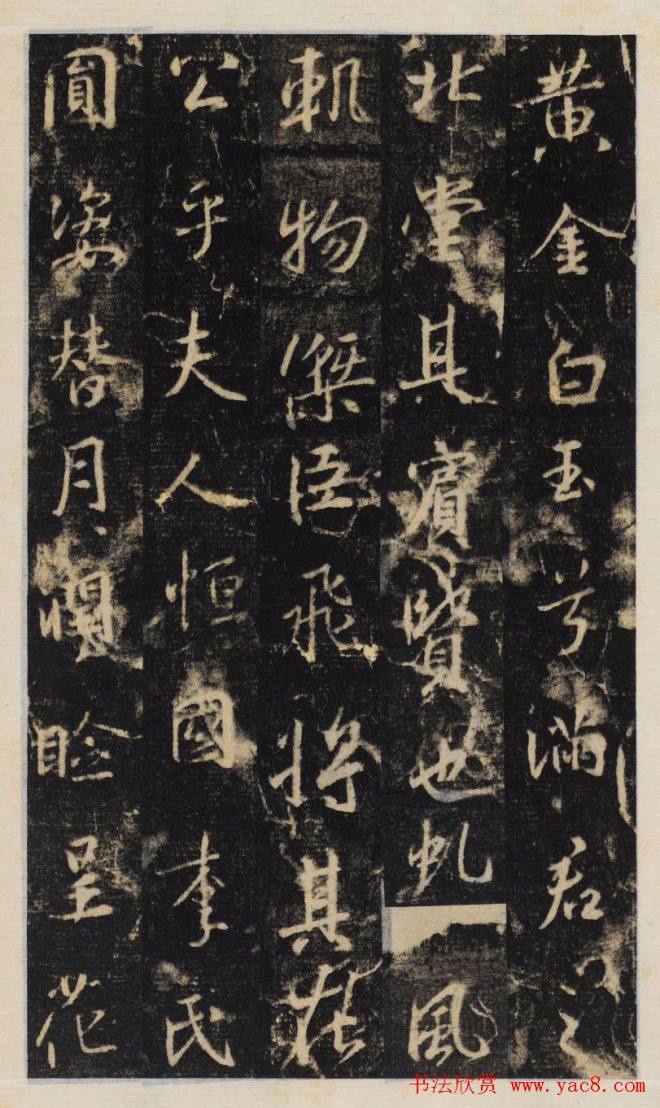 黄金白玉兮滿君之
北堂其賓賢也虬風
軌物傑臣飛將其在
公乎夫人恒國李氏
圓姿替月潤臉呈花
书法欣赏 www.yac8.com